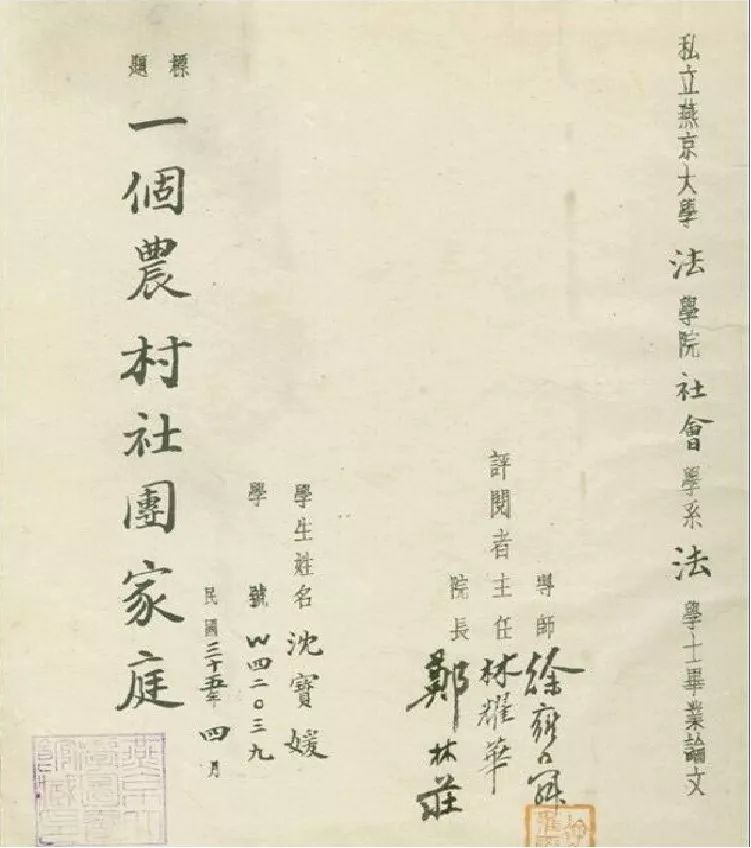 私立燕京大學法學院社會學系法學士畢業論文
導師 徐雍舜
評閱者 主任 林耀華
院長 鄭林莊
學生姓名 沈寶媛
學號 W四二〇三九
民國三十五年四月
標題
一個農村社團家庭